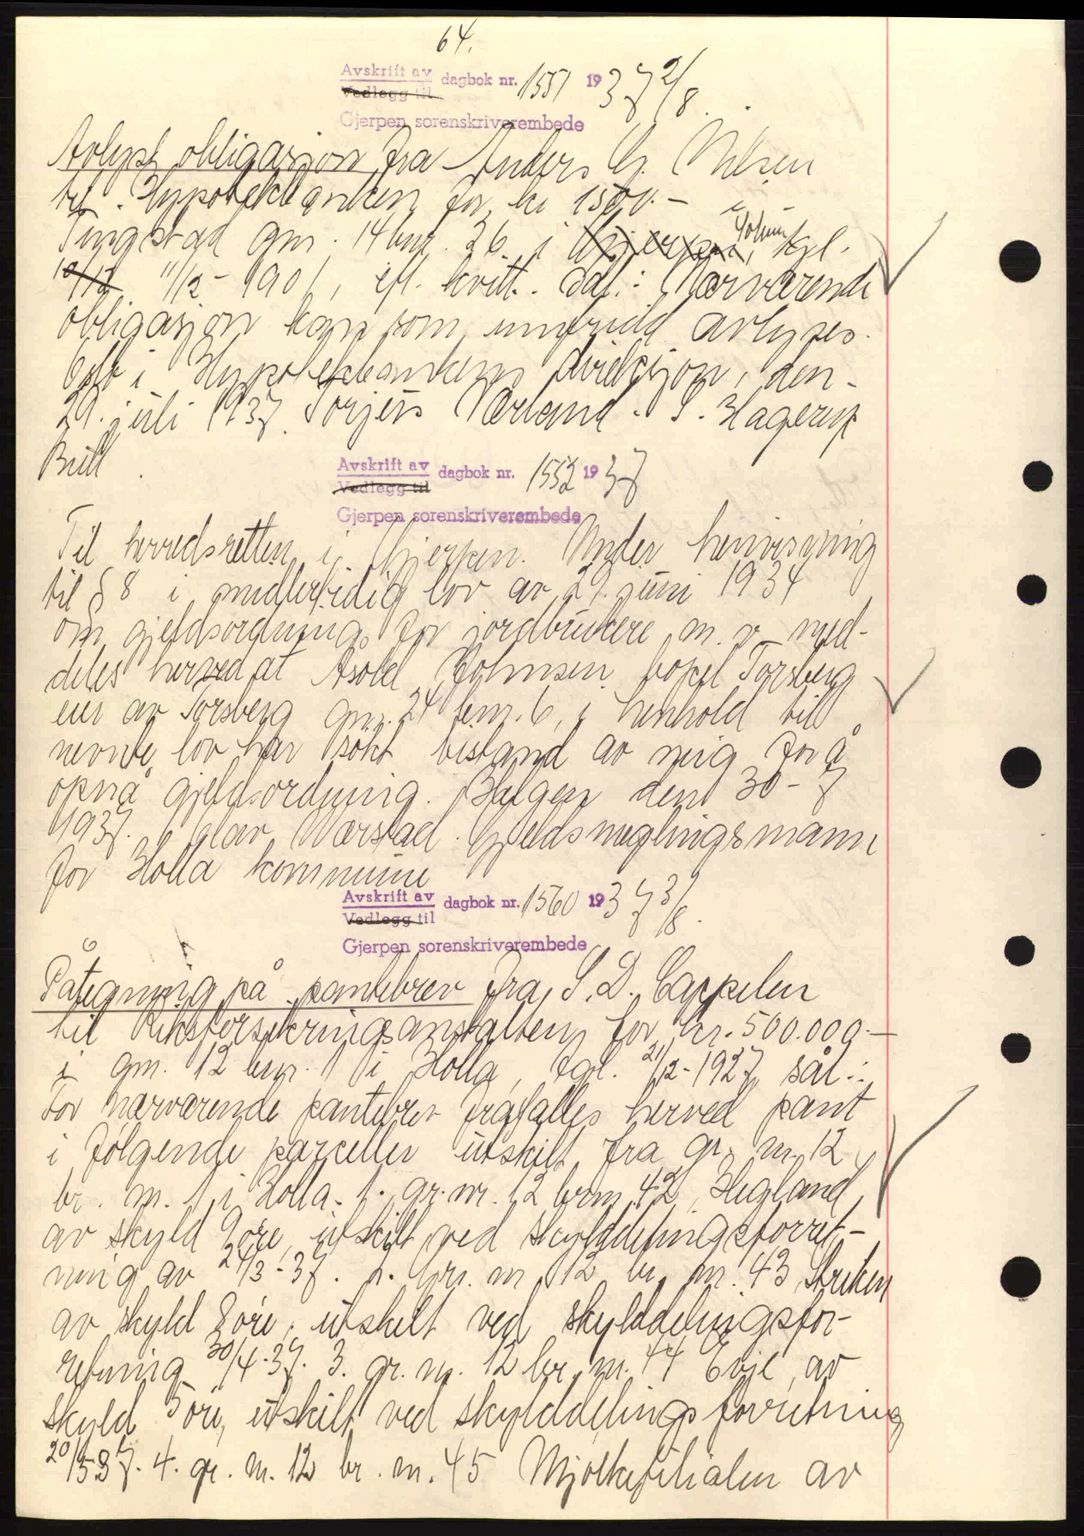 64.
Avskrift av dagbok nr. 1551 1937 2/8
Vedlegg til
Gjerpen sorenskriverembede
Avlyst obligasjon fra Anders G. Nilsen
til Hypotekbanken for kr 1500.- i
Tingstad gnr. 14 bnr. 26 i Gjerpen, Solum tgl.
10/12 11/12-1901, efl. kvitt. dat.: Nærværende
obligasjon kan som innfridd avlyses.
Oslo i Hypotekbankens direksjon, den
29. juli 1937. Torjeus Værland. S. Hagerup
Bull.
Avskrift av dagbok nr. 1552 1937
Vedlegg til
Gjerpen sorenskriverembede
Til herredsretten i Gjerpen. Under henvisning
til § 8 i midlertidig lov av 29. juni 1934
om gjeldsordning for jordbrukere m. v. med-
deles herved at Asold Johnsen bopel Torsberg
eier av Torsberg gnr. 24 bnr. 6, i henhold til
nevnte lov har søkt bistand av mig for å
opnå gjeldsordning. den 30-7
1937. Olav Værstad. Gjeldsmeglingsmann
for Holla kommune
Avskrift av dagbok nr. 1560 1937 3/8.
Vedlegg til
Gjerpen sorenskriverembede
Påtegning på pantebrev fra S. D. Cappelen
til Riksforsikringsanstalten for kr. 500.000.-
i gnr. 12 bnr. 1 i Holla, tgl. 21/2-1927, sål.:
For nærværende pantebrev frafalles herved pant
i følgende parceller utskilt fra gr. nr. 12
br. nr. 1 i Holla. 1. gr. nr. 12 brnr. 42 Hegland,
av skyld øre, utskilt ved skylddelingsforret-
ning av 24/3-37. 2. gr. nr. 12 br. nr. 43
av skyld øre, utskilt ved skylddelingsfor-
retning 30/4-37. 3. gr. nr. 12 br. nr. 44 Evje, av
skyld øre, utskilt ved skylddelingsforretning
20/5 37. 4. gr. nr. 12 br. nr. 45 Mjølkefilialen av